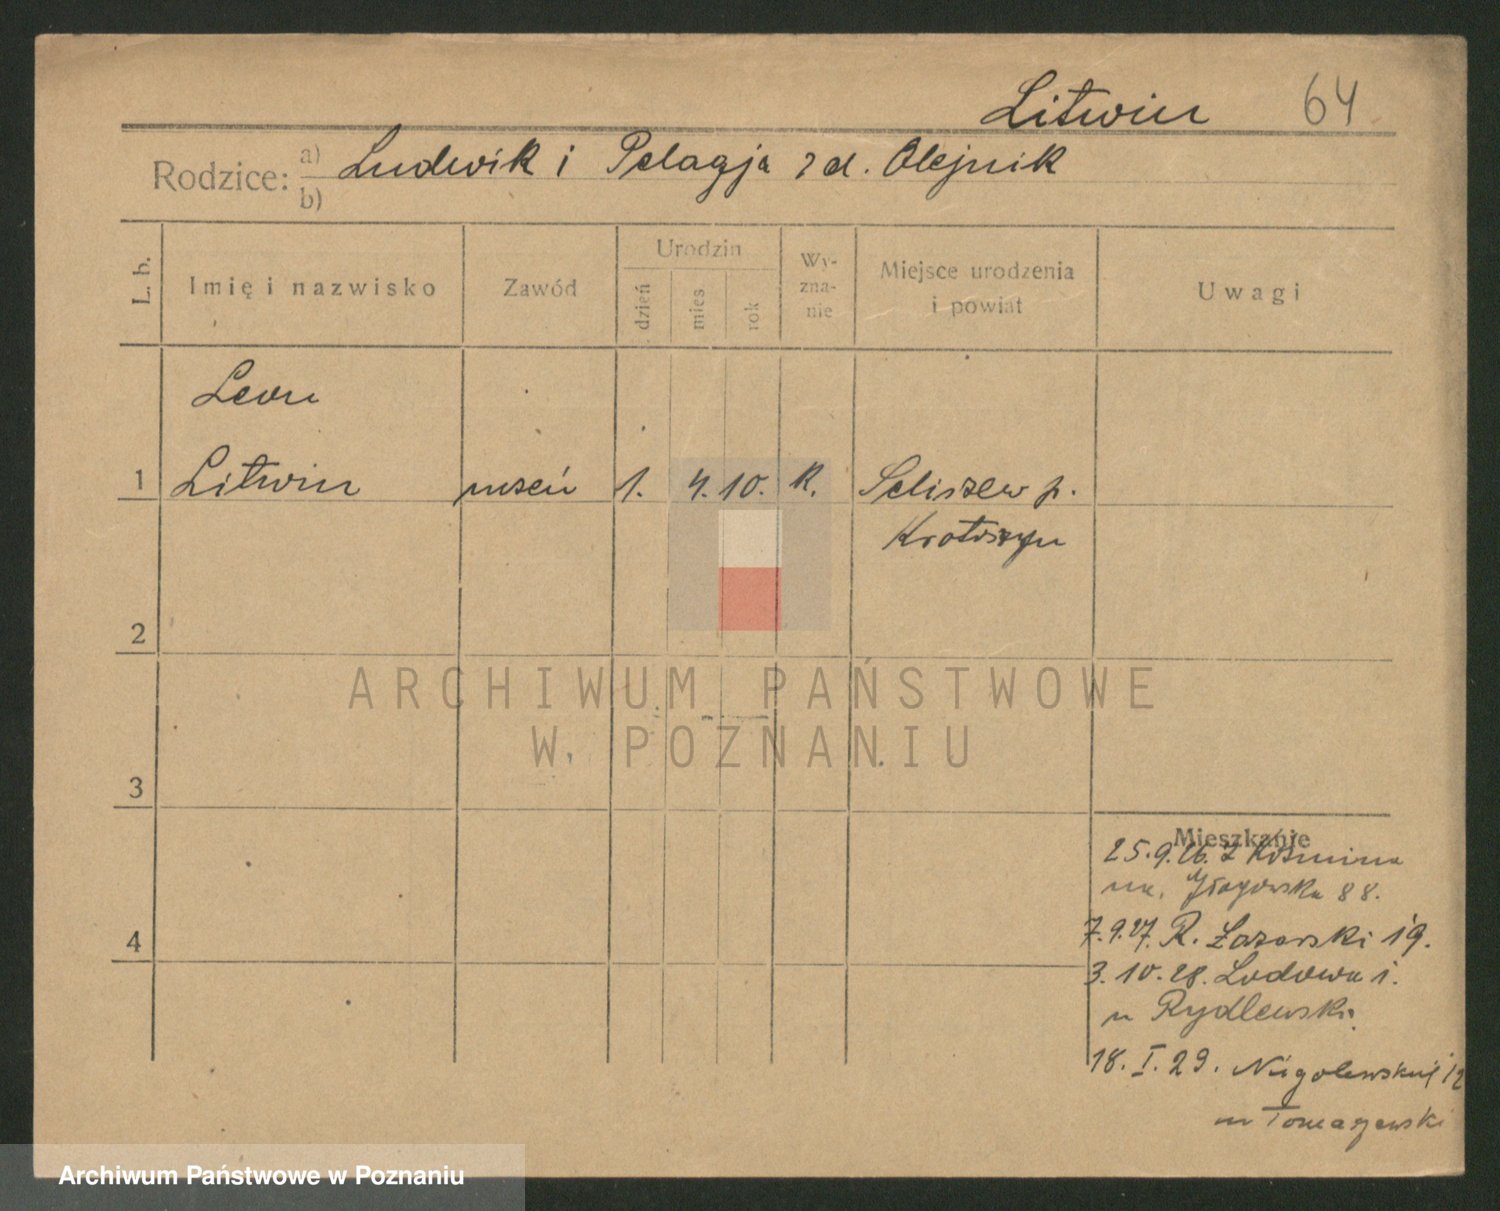 Litwin 64
Rodzice: a) Ludwik i Pelagja z d. Olejnik
b)
L. b. Imię i nazwisko Zawód Urodzin dzień mies rok Wy-zna-nie Miejsce urodzenia i powiat Uwagi
Leon
1 Litwin uczeń 1. 4. 10. K. Seliszew p.
Krotoszyn
2
ARCHIWUM PAŃSTWOWE
W POZNANIU
3
Mieszkanie
25.9.26. z Koźmina
88.
4
7.9.27. R. Łazarski 19.
3.10.28. Lodowa 1.
u Rydlewski.
18. I. 29. 12
u Tomaszewski
Archiwum Państwowe w Poznaniu